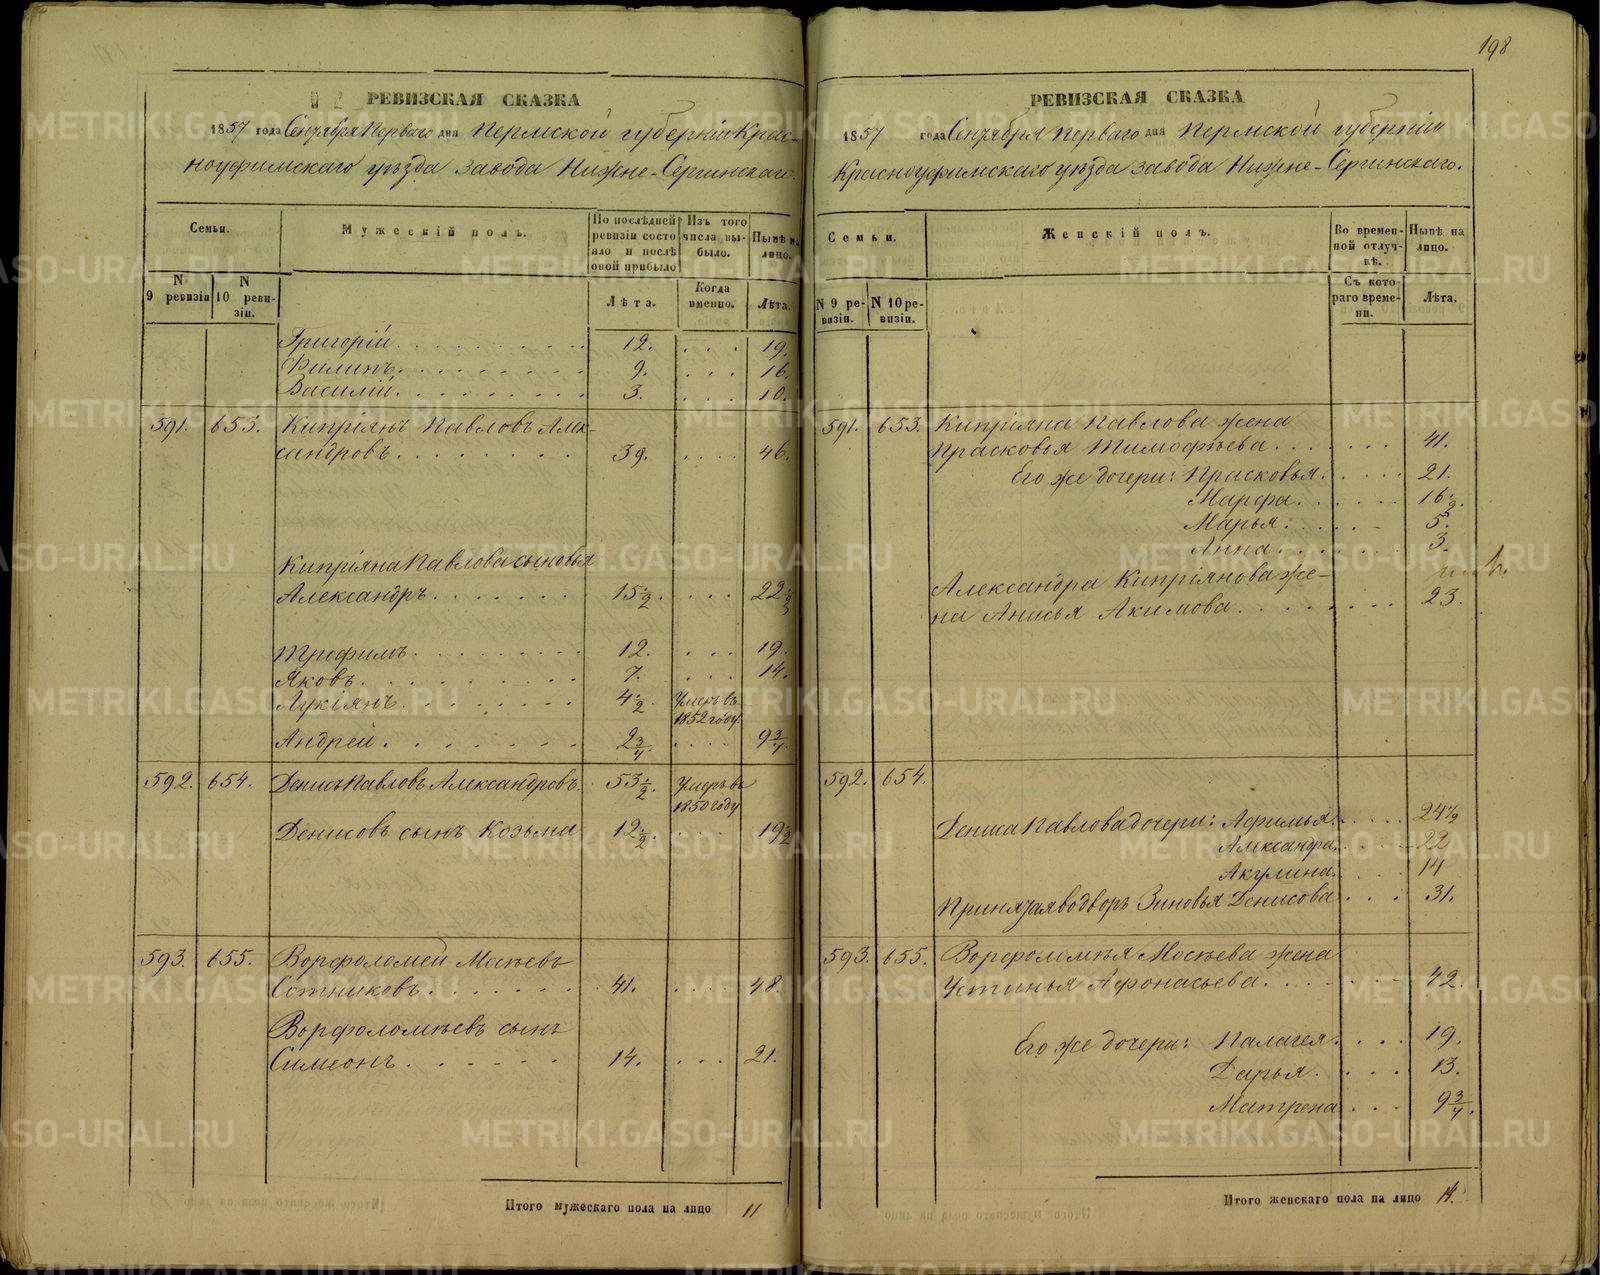 198
РЕВИЗСКАЯ СКАЗКА
1857 года Сентября Перваго дня Пермской губерніи Крас-
ноуфимскаго уѣзда завода Нижне-Сергинскаго.
Семьи.
Мужескій полъ.
По послѣдней ревизіи состояло и послѣ оной прибыло
Изъ того числа выбыло.
Нынѣ на лицо.
N 9 ревизіи
N 10 ревизіи.
Лѣта.
Когда именно.
Лѣта.
Григорій. 12. 19.
Филипъ. 9. 16.
Василій. 3. 10.
591. 653. Кипріянъ Павловъ Алек-
сандровъ. 39. 46.
Кипріяна Павлова сыновья
Александръ. 15½. 22½
Трофимъ. 12. 19.
Яковъ. 7. 14.
Лукіянъ. 4½. Умеръ въ
1852 году.
Андрей. 2¾. 9¾.
592. 654. Денисъ Павловъ Александровъ. 53½. Умеръ въ
1850 году
Денисовъ сынъ Козьма 12½. 19½
593. 655. Ворфоломей Мосѣевъ
Сотниковъ. 41. 48.
Ворфоломѣевъ сынъ
Симеонъ. 14. 21.
Итого мужескаго пола на лицо 11
РЕВИЗСКАЯ СКАЗКА
1857 года Сентября Перваго дня Пермской губерніи
Красноуфимскаго уѣзда завода Нижне-Сергинскаго.
Семьи.
Женскій полъ.
Во временной отлучкѣ.
Нынѣ на лицо.
N 9 ревизіи.
N 10 ревизіи.
Съ котораго времени.
Лѣта.
591. 653. Кипріяна Павлова жена
Прасковья Тимофѣева. 41.
Его же дочери: Прасковья. 21.
Марфа. 16½.
Марья. 5.
Анна. 3.
Александра Кипріянова же-
на Анисья Акимова. 23.
592. 654.
Дениса Павлова дочери: Афимья. 24½
Александра. 22
Акулина. 14
Принязая во дворъ Зиновья Денисова 31.
593. 655. Ворфоломѣя Мосѣева жена
Устинья Афонасьева. 42.
Его же дочери: Палагея. 19.
Дарья. 13.
Матрена 9¾.
Итого женскаго пола на лицо 14.
METRIKI.GASO-URAL.RU